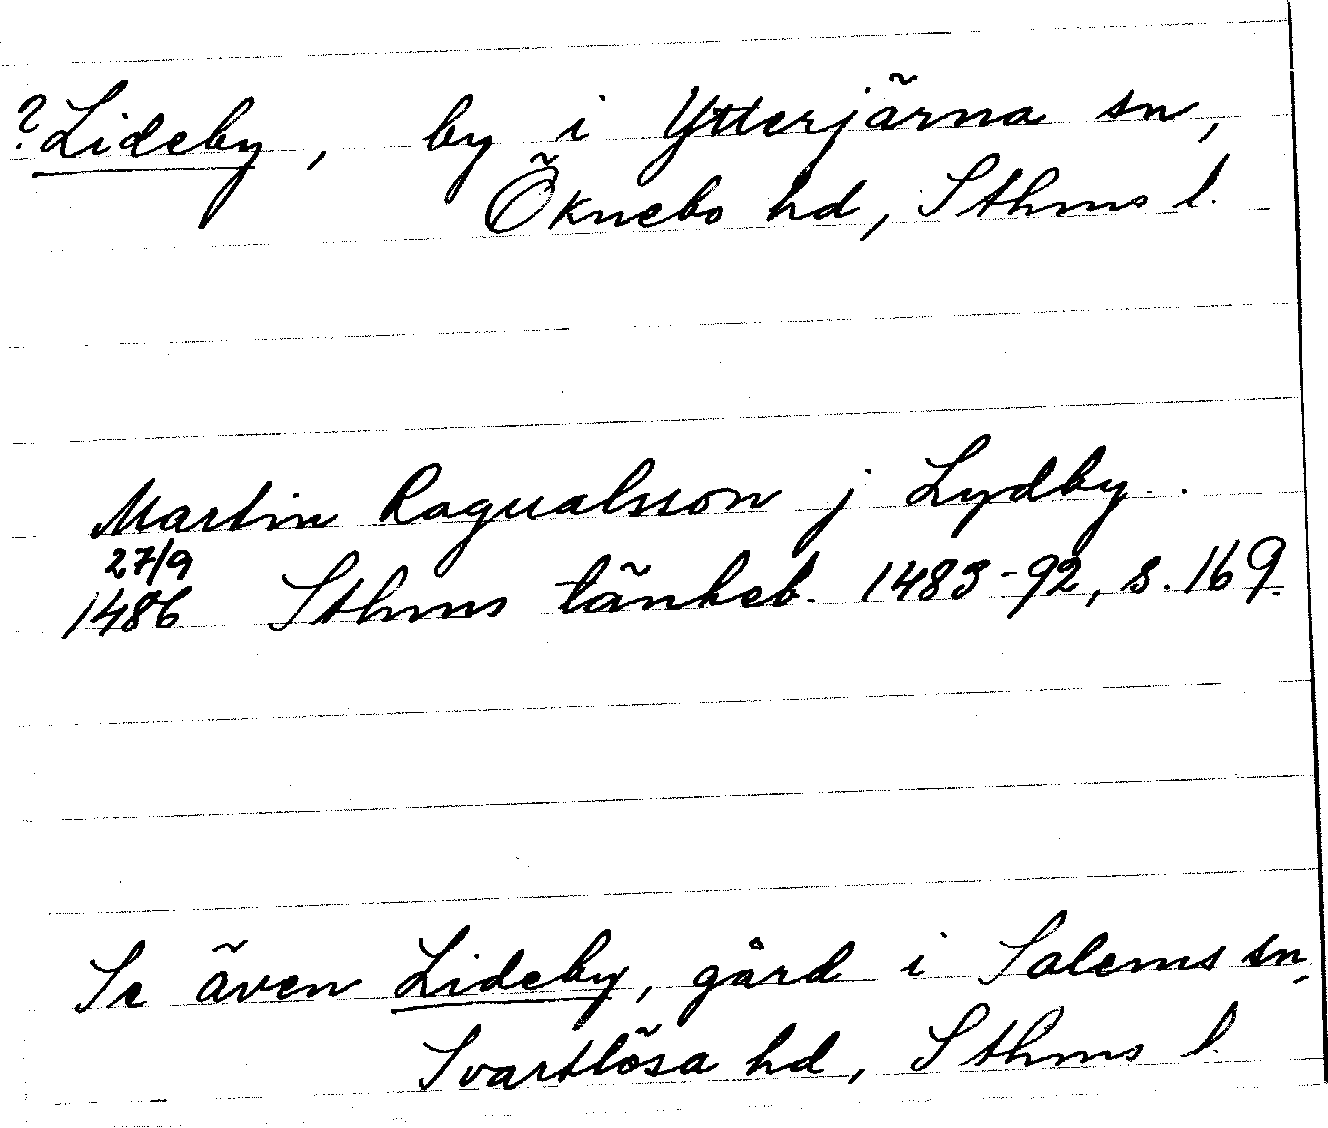 ? Lideby, by i Ytterjärna sn,
Öknebo hd, Sthms l.
Martin Ragualsson j Lydby.
27/9
1486 Sthms tänkeb. 1483-92, s. 169.
Se även Lideby, gård i Salems sn,
Svartlösa hd, Sthms l.